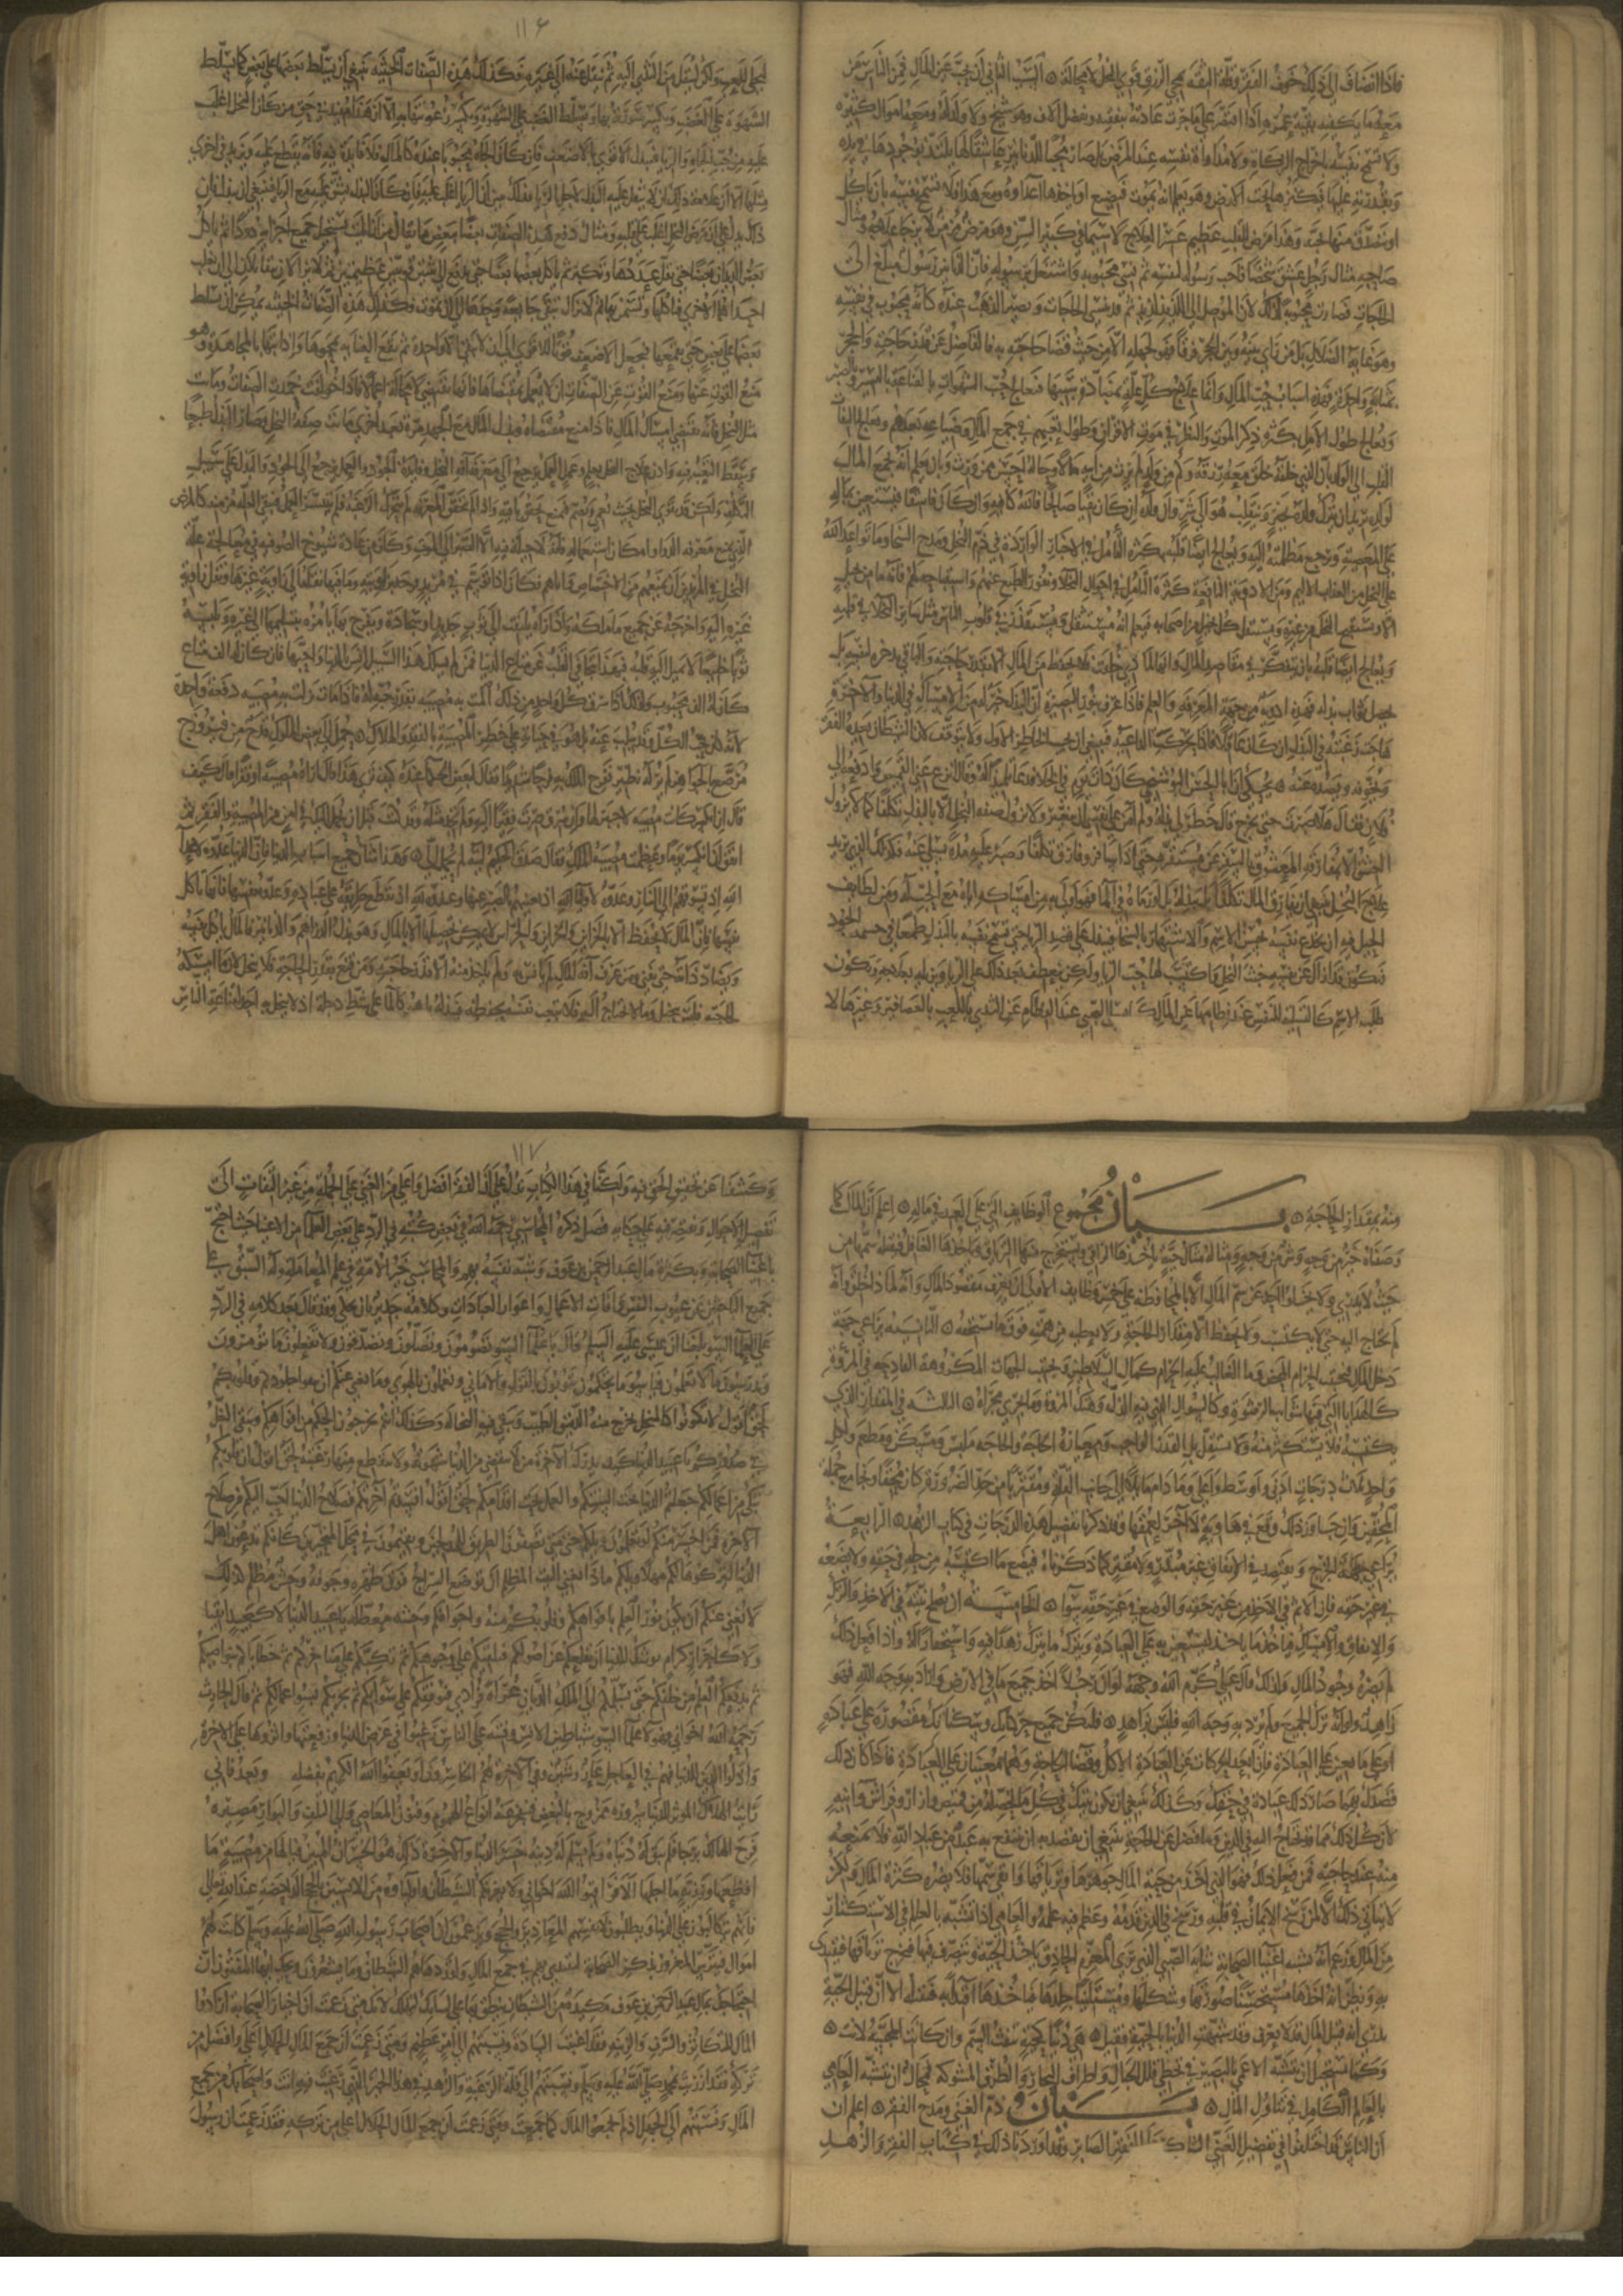 فإذا انضاف إلى ذلك خوف الفقر وقلة الثقة بمجي الرزق قوي البخل لا محالة ۞ السبب الثاني أن يحب عين المال فمن الناس من
معه ما يكفيه بقية عمره إذا اقتصر على ما جرت عادته بنفقته وتفضل آلاف وهو شيخ ولا ولد له ومعه أموال كثيرة
ولا تسمح نفسه بإخراج الزكاة ولا مداواة نفسه عند المرض بل صار محبا للدنانير عاشقا لها يلتذ بوجودها في يده
وبقدرته عليها فيكنزها تحت الأرض وهو يعلم أنه يموت فتضيع أو يأخذها أعداؤه ومع هذا فلا تسمح نفسه بأن يأكل
أو يتصدق منها بحبة وهذا مرض للقلب عظيم عسر العلاج لا سيما في كبر السن وهو مرض مزمن لا يرجى علاجه ومثال
صاحبه مثال رجل عشق شخصا فأحب رسوله لنفسه ثم نسي محبوبه واشتغل برسوله فإن الدنانير رسول مبلغ إلى
الحاجات فصارت محبوبة لذلك لأن الموصل إلى اللذيذ لذيذ ثم قد ينسى الحاجات ويصير الذهب عنده كأنه محبوب في نفسه
وهو غاية الضلال بل من رأى بينه وبين الحجر فرقا فهو لجهله إلا من حيث قضا حاجته به فالفاضل عن قدر حاجته والحجر
بمثابة واحدة فهذه أسباب حب المال وإنما علاج كل علة بمضادة سببها فعالج حب الشهوات بالقناعة باليسير وبالصبر
وتعالج طول الأمل بكثرة ذكر الموت والنظر في موت الأقران وطول تعبهم في جمع المال وضياعه بعدهم وتعالج التفات
القلب إلى الولد بأن الذي خلقه خلق معه رزقه وكم من ولد لم يرث من أبيه مالا وحاله أحسن ممن ورث وبأن يعلم أنه يجمع المال
لولده يريد أن يترك ولده بخير وينقلب هو إلى شر وأن ولده إن كان تقيا صالحا فالله كافيه وإن كان فاسقا فيستعين بماله
على المعصية وترجع مظلمته إليه ويعالج أيضا قلبه بكثرة التأمل في الأخبار الواردة في ذم البخل ومدح السخا وما تواعد الله
على البخل من العذاب الأليم ومن الأدوية النافعة كثرة التأمل في أحوال البخلا ونفور الطبع عنهم واستقباحه لهم فإنه ما من بخيل
إلا ويستقبح البخل من غيره ويستثقل كل بخيل من أصحابه فيعلم أنه مستثقل ومستقذر في قلوب الناس مثل سائر البخلا في قلبه
ويعالج أيضا قلبه بأن يتفكر في مقاصد المال وأنه لماذا خلق فلا يحفظ من المال إلا بقدر حاجته والباقي يدخره لنفسه بأن
يحصل ثواب بذله فهذه أدوية من جهة المعرفة والعلم فإذا عرف بنور البصيرة أن البذل خير له من الإمساك في الدنيا والآخرة
هاجت رغبته في البذل إن كان عاقلا فإذا تحركت الداعية فينبغي أن يجيب الخاطر الأول ولا يتوقف لأن الشيطان يعده الفقر
ويخوفه ويصده عنه ۞ يحكى أن أبا الحسن البوشنجي كان ذات يوم في الخلا فدعا تلميذا له وقال انزع عني القميص وادفعه إلى
فلان فقال هلا صبرت حتى تخرج قال خطر لي بذله ولم آمن على نفسي أن تتغير ولا تزول صفة البخل إلا بالبذل تكلفا كما لا يزول
العشق إلا بمفارقة المعشوق بالسفر عن مستقره حتى إذا سافر وفارق تكلفا وصبر عليه مدة تسلى عنه فكذلك الذي يريد
علاج البخل ينبغي أن يفارق المال تكلفا بأن يبذله بل لو رماه في الماء لكان أولى به من إمساكه إياه مع الحب له ومن لطائف
الحيل فيه أن يخدع نفسه بحسن الاسم والاشتهار بالسخا فيبذل على قصد الريا حتى تسمح نفسه بالبذل طمعا في حشمة الجود
فيكون قد أزال عن نفسه خبث البخل واكتسب لها خبث الريا ولكن ينعطف بعد ذلك على الريا ويزيله بعلاجه ويكون
طلب الاسم كالتسلية للنفس عند فطامها عن المال كما يسلى الصبي عند الفطام عن الثدي باللعب بالعصافير وغيرها لا
ليخلى واللعب ولكن لينفك عن الثدي إليه ثم ينقل عنه إلى غيره فكذلك هذه الصفات الخبيثة ينبغي أن يسلط بعضها على بعض كما يسلط
الشهوة على الغضب ويكسر سورته بها ويسلط الغضب على الشهوة ويكسر رعونتها به إلا أن هذا مفيد في حق من كان البخل أغلب
عليه من حب الجاه والريا فيبدل الأقوى بالأضعف فإن كان الجاه محبوبا عنده كالمال فلا فائدة فيه فإنه يقطع علة ويزيد في أخرى
مثلها إلا أن علامة ذلك أن لا يثقل عليه البذل لأجل الريا فبذلك يتبين أن الريا أغلب عليه فإن كان البذل يشق عليه مع الريا فينبغي أن يبذل فإن
ذلك يدل على أن مرض البخل أغلب على قلبه ومثال دفع هذه الصفات بعضها ببعض ما يقال من أن الميت يستحيل جميع أجزايه دودا ثم يأكل
بعض الديدان بعضا حتى يقل عددها وتكبر ثم يأكل بعضها بعضا حتى يرجع إلى اثنتين قويتين عظيمتين ثم لا تزالان تتقاتلان إلى أن تغلب
إحداهما الأخرى فتأكلها وتسمن بها ثم لا تزال تبقى جايعة وحدها إلى أن تموت فكذلك هذه الصفات الخبيثة يمكن أن يسلط
بعضها على بعض حتى يقمعها فيجعل الأضعف قوتا للأقوى إلى أن لا يبقى إلا واحدة ثم تقع العناية بمحوها وإذابتها بالمجاهدة وهو
منع القوت عنها ومنع القوت عن الصفات أن لا يعمل بمقتضاها فإنها تقتضي لا محالة أعمالا فإذا خولفت خمدت الصفات وماتت
مثل البخل فإنه يقتضي إمساك المال فإذا منع مقتضاه وبذل المال مع الجهد مرة بعد أخرى ماتت صفة البخل وصار البذل طبعا
وسقط التعب فيه وإذن علاج البخل بعلم وعمل العلم يرجع إلى معرفة آفة البخل وفايدة الجود والعمل يرجع إلى الجود والبذل على سبيل
التكلف ولكن قد يقوى البخل بحيث يعمي ويصم فيمنع تحقق المعرفة به وإذا لم تتحقق المعرفة لم تتحرك الرغبة فلم يتيسر العمل فتبقى العلة مزمنة كالمرض
الذي يمنع معرفة الدوا وإمكان استعماله فإنه لا حيلة فيه إلا الصبر إلى الموت وكان من عادة شيوخ الصوفية في معالجة علة
البخل في المريدين أن يمنعهم من الاختصاص بزواياهم فكان إذا توسم في مريد فرحه بزاويته وما فيها نقله إلى زاوية غيرها ونقل زاوية
غيره إليه وأخرجه عن جميع ما ملكه وإذا رآه يلتفت إلى ثوب جديد أو سجادة ويفرح بها يأمره بتسليمها إلى غيره ويلبسه
ثوبا خلقا لا يميل إليه قلبه فبهذا يتجافى القلب عن متاع الدنيا فمن لم يسلك هذا السبيل أنس بالدنيا وأحبها فإن كان له ألف متاع
كان له ألف محبوب ولذلك إذا سرق كل واحد من ذلك ألمت به مصيبة بقدر حبه له فإذا مات نزلت به ألف مصيبة دفعة واحدة
لأنه كان يحب الكل وقد سلب عنه بل هو في حياته على خطر المصيبة بالفقد والهلاك ۞ حمل إلى بعض الملوك قدح من فيروزج
مرصع بالجواهر لم ير له نظير ففرح الملك به فرحا شديدا فقال لبعض الحكما عنده كيف ترى هذا قال أراه مصيبة أو فقرا قال كيف
قال إن انكسر كان مصيبة لا جبر لها وإن سرق صرت فقيرا إليه ولم تجد مثله وقد كنت قبل أن يحمل إليك في أمن من المصيبة والفقر ثم
اتفق أن انكسر يوما وعظمت مصيبة الملك فقال صدق الحكيم ليته لم يحمل إلي ۞ وهذا شأن جميع أسباب الدنيا فإن الدنيا عدوة لأعدا
الله إذ تسوقهم إلى النار وعدوة لأوليا الله إذ تغمهم بالصبر عنها وعدوة لله إذ تقطع طريقه على عباده وعدوة نفسها فإنها تأكل
نفسها فإن المال لا يحفظ إلا بالخزاين والحراس والخزاين والحراس لا يمكن تحصيلها إلا بالمال وهو بذل الدراهم والدنانير فالمال يأكل نفسه
ويضاد ذاته حتى يفنى ومن عرف آفة المال لم يأنس به ولم يأخذ منه إلا قدر حاجته ومن قنع بقدر الحاجة فلا يبخل لأن ما أمسكه
لحاجته فليس ببخل وما لا يحتاج إليه فلا يتعب نفسه بحفظه فيبذله بل هو كالما على شط دجلة إذ لا يبخل به أحد لقناعة الناس
منه بمقدار الحاجة ۞ بيان مجموع الوظايف التي على العبد في ماله ۞ اعلم أن المال كما
وصفناه خير من وجه وشر من وجه ومثاله مثال حية يأخذها الراقي ويستخرج منها الترياق ويأخذها الغافل فيقتله سمها من
حيث لا يدري ولا يخلو أحد عن سم المال إلا بالمحافظة على خمس وظايف الأولى أن يعرف مقصود المال وأنه لماذا خلق وأنه
لم يحتاج إليه حتى لا يكتسب ولا يحفظ إلا مقدار الحاجة ولا يعطيه من همته فوق ما يستحقه ۞ الثانية يراعي جهة
دخل المال فيجتنب الحرام المحض وما الغالب عليه الحرام كمال السلاطين ويجتنب الجهات المكروهة القادحة في المروة
كالهدايا التي فيها شوايب الرشوة وكالسوال الذي فيه الذل وهتك المروة وما يجري مجراه ۞ الثالثة في المقدار الذي
يكتسبه فلا يستكثر منه ولا يستقل بل القدر الواجب ومعياره الحاجة والحاجة ملبس ومسكن ومطعم ولكل
واحد ثلاث درجات أدنى وأوسط وأعلى وما دام مايلا إلى جانب القلة ومتقربا من حد الضرورة كان محقا وجا من جملة
المحقين وإن جاوز ذلك وقع في هاوية لا آخر لعمقها وقد ذكرنا تفصيل هذه الدرجات في كتاب الزهد ۞ الرابعة
يراعي جهة الخرج ويقتصد في الإنفاق غير مبذر ولا مقتر كما ذكرناه فيضع ما اكتسبه من حله في حقه ولا يضعه
في غير حقه فإن الإثم في الأخذ من غير حقه والوضع في غير حقه سوا ۞ الخامسة أن يصلح نيته في الأخذ والترك
والإنفاق والإمساك فيأخذ ما يأخذ ليستعين به على العبادة ويترك ما يترك زهدا فيه واستحقارا له وإذا فعل ذلك
لم يضره وجود المال ولذلك قال علي كرم الله وجهه لو أن رجلا أخذ جميع ما في الأرض وأراد به وجه الله فهو
زاهد ولو أنه ترك الجميع ولم يرد به وجه الله فليس بزاهد ۞ فلتكن جميع حركاتك وسكناتك مقصورة على عبادة
أو على ما يعين على العبادة فإن أبعد الحركات عن العبادة الأكل وقضا الحاجة وهما معينان على العبادة فإذا كان ذلك
قصدك بهما صار ذلك عبادة في حقك وكذلك ينبغي أن تكون نيتك في كل ما يحفظك من قميص وإزار وفراش وآنية
لأن كل ذلك مما تحتاج إليه في الدين وما فضل عن الحاجة ينبغي أن يقصد به أن ينتفع به عبد من عباد الله فلا يمنعه
منه عند حاجته فمن فعل ذلك فهو الذي أخذ من حية المال جوهرها وترياقها واتقى سمها فلا يضره كثرة المال ولكن
لا يتأتى ذلك إلا لمن رسخ الإيمان في قلبه ورسخ في الدين قدمه وعظم فيه علمه والعامي إذا تشبه بالعالم في الاستكثار
من المال وزعم أنه يشبه أغنيا الصحابة شابه الصبي الذي يرى المعزم الحاذق يأخذ الحية ويتصرف فيها فيخرج ترياقها فيقتدي
به ويظن أنه أخذها مستحسنا صورتها وشكلها ومستلينا جلدها فيأخذها اقتدا به فتقتله إلا أن قتيل الحية
يدري أنه قتيل المال قد لا يعرف وقد شبهت الدنيا بالحية فقيل ۞ هي دنيا كحية تنفث السم وإن كانت المجسة لانت ۞
وكما يستحيل أن يتشبه الأعمى بالبصير في تخطي قلل الجبال وأطراف البحار والطرق المشوكة فمحال أن يتشبه العامي
بالعالم الكامل في تناول المال ۞ بيان ذم الغنى ومدح الفقر ۞ اعلم أن
أن الناس قد اختلفوا في تفضيل الغني الشاكر على الفقير الصابر وقد أوردنا ذلك في كتاب الفقر والزهد
وكشفنا عن تحقيق الحق فيه ولكنا في هذا الكتاب ندل على أن الفقر أفضل وأعلى من الغنى على الجملة من غير التفات إلى
تفصيل الأحوال ونقتصر فيه على حكاية فصل ذكره المحاسبي رحمه الله في بعض كتبه في الرد على بعض العلما من الأغنيا حيث احتج
بأغنيا الصحابة وبكثرة مال عبد الرحمن بن عوف وشبه نفسه بهم والمحاسبي خير الأمة في علم المعاملة وله السبق على
جميع الباحثين عن عيوب النفس وآفات الأعمال وأغوار العبادات وكلامه جدير بأن يحكى وقد قال بعد كلام له في الرد
على العلما السو بلغنا أن عيسى عليه السلم قال يا علما السو تصومون وتصلون وتصدقون ولا تفعلون ما تومرون
وتدرسون ما لا تعلمون فيا سو ما تحكمون تتوبون بالقول والأماني وتعملون بالهوى وما يغني عنكم أن تنقوا جلودكم وقلوبكم
بحق أقول لكم لا تكونوا كالمنخل يخرج منه الدقيق الطيب وتبقى فيه النخالة وكذلك أنتم تخرجون الحكم من أفواهكم ويبقى الغل
في صدوركم يا عبيد الدنيا كيف يدرك الآخرة من لا تنقضي من الدنيا شهوته ولا تنقطع منها رغبته بحق أقول إن قلوبكم
تبكي من أعمالكم جعلتم الدنيا تحت ألسنتكم والعمل تحت أقدامكم بحق أقول أفسدتم آخرتكم فصلاح الدنيا أحب إليكم من صلاح
الآخرة فمن أخسر منكم لو تعلمون ويلكم حتى متى تصفون الطريق للمدلجين وتقيمون في محل المتحيرين كأنكم تدعون أهل
الدنيا ليتركوها لكم مهلا ويلكم ماذا يغني البيت المظلم أن يوضع السراج فوق ظهره وجوفه وحش مظلم كذلك
لا يغني عنكم أن يكون نور العلم بأفواهكم وقلوبكم منه وأجوافكم وحشة معطلة يا عبيد الدنيا لا كعبيد أتقيا
ولا كأحرار كرام توشك الدنيا أن تقلعكم عن أصولكم فتلقيكم على وجوهكم ثم تكبكم على مناخركم ثم تأخذ خطاياكم بنواصيكم
ثم يدفعكم العلم من خلفكم حتى يسلمكم إلى الملك الديان عراة فرادى فيوقفكم على سوآتكم ثم يجزيكم بسوء أعمالكم ثم قال الحارث
رحمه الله إخواني فهولاء علما السو شياطين الإنس وفتنة على الناس رغبوا في عرض الدنيا ورفعتها وآثروها على الآخرة
وأذلوا الدين للدنيا فهم في العاجل عار وشين وفي الآخرة هم الخاسرون أو يعفو الله الكريم بفضله وبعد فإني
رأيت الهالك الموثر للدنيا سروره ممزوج بالتنغيص فيتفجر عنه أنواع الهموم وفنون المعاصي وإلى التلف والبوار مصيره
فرح الهالك برجاه فلم تبق له دنياه ولم يسلم له دينه خسر الدنيا والآخرة ذلك هو الخسران المبين فيا لها من مصيبة ما
أفظعها ورزية ما أجلها ألا فراقبوا الله إخواني ولا يغرنكم الشيطان وأولياؤه من الآنسين بالحجج الداحضة عند الله تعالى
فإنهم يتكالبون على الدنيا ويطلبون لأنفسهم المعاذير والحجج ويزعمون أن أصحاب رسول الله صلى الله عليه وسلم كانت لهم
أموال فيتزين المغرورون بذكر الصحابة ليعذرهم في جمع المال ولقد دهاهم الشيطان وما يشعرون ويحك أيها المفتون إن
احتجاجك بمال عبد الرحمن بن عوف مكيدة من الشيطان ينطق بها على لسانك لتهلك لأنك متى زعمت أن أخيار الصحابة أرادوا
المال للتكاثر والشرف والزينة فقد اغتبت السادة ونسبتهم إلى أمر عظيم ومتى زعمت أن جمع المال الحلال أعلى وأفضل من
تركه فقد ازدريت محمدا صلى الله عليه وسلم ونسبتهم إلى قلة الرغبة والزهد في هذا الخير الذي رغبت فيه أنت وأصحابك من جمع
المال ونسبتهم إلى الجهل إذ لم يجمعوا المال كما جمعت ومتى زعمت أن جمع المال الحلال أعلى من تركه فقد زعمت أن رسول